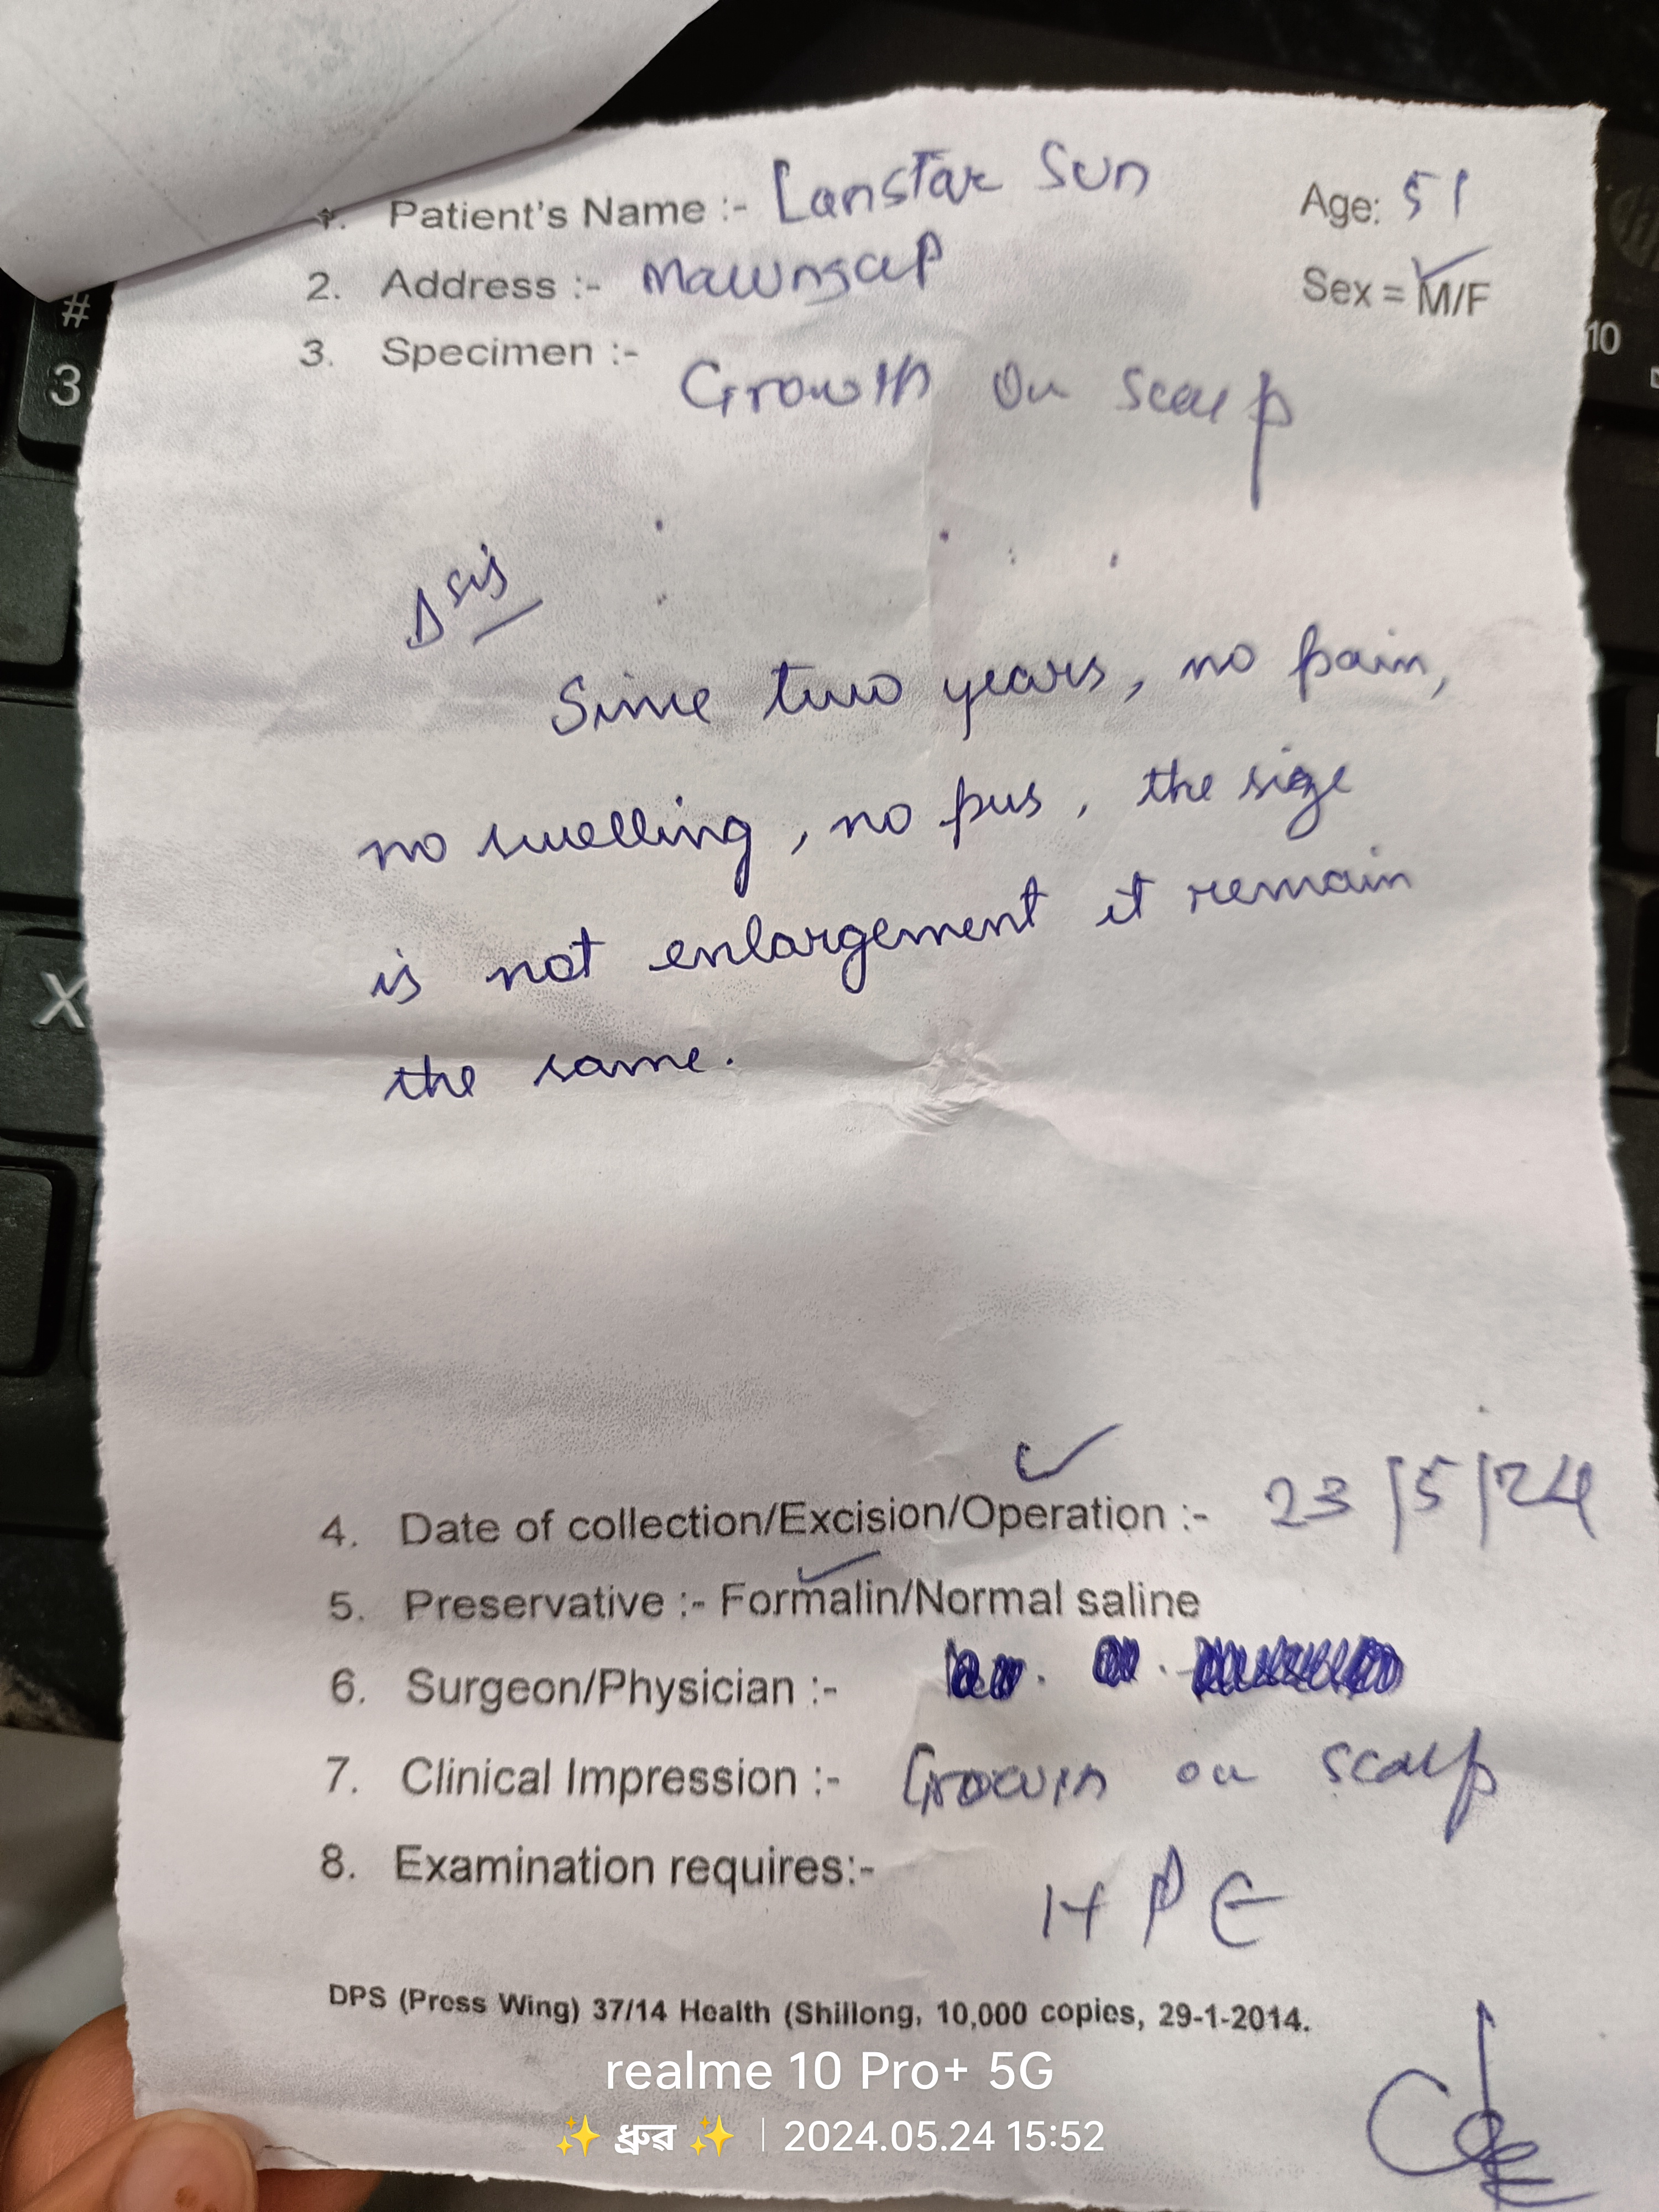 1. Patient's Name :- Lanstar Sun Age: 51
2. Address :- Mawngap Sex = M/F
3. Specimen :- Growth on scalp
Δsis
Since two years, no pain,
no swelling, no pus, the size
is not enlargement it remain
the same.
4. Date of collection/Excision/Operation :- 23/5/24
5. Preservative :- Formalin/Normal saline
6. Surgeon/Physician :-
7. Clinical Impression :- Growth on scalp
8. Examination requires:- HPE
DPS (Press Wing) 37/14 Health (Shillong, 10,000 copies, 29-1-2014.
realme 10 Pro+ 5G
✨ ধ্রুব ✨ | 2024.05.24 15:52
#
3
X
10
hp